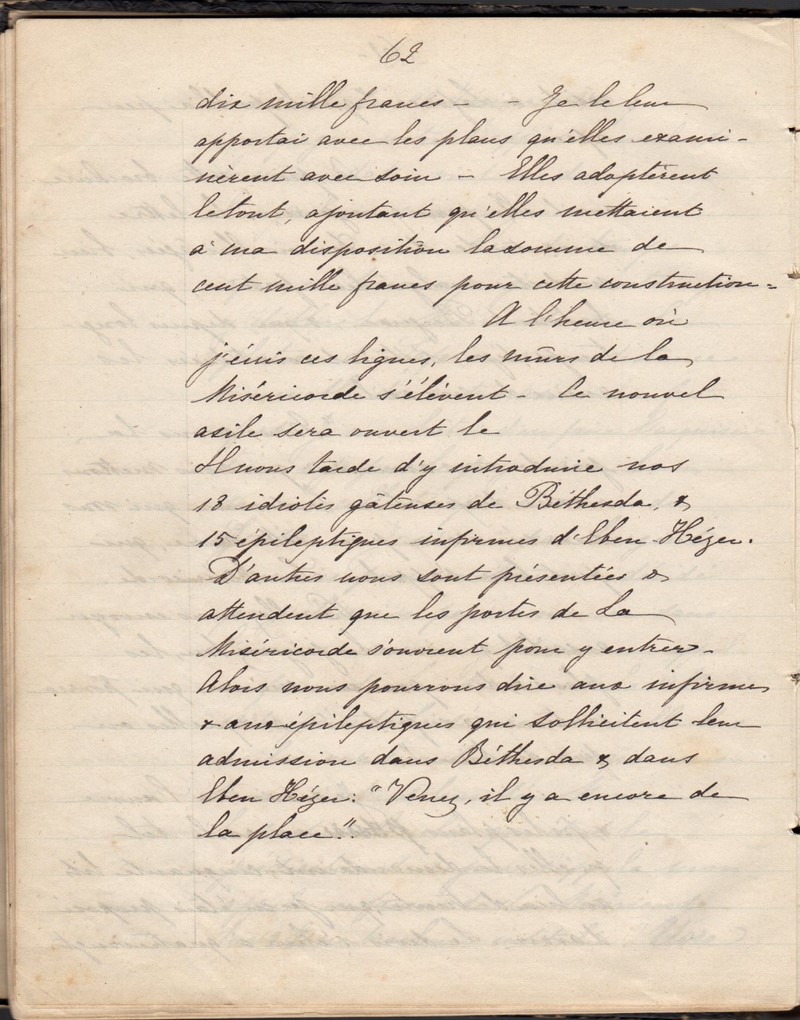 62
dix mille francs - - Je le leur
apportai avec les plans qu'elles exami-
nèrent avec soin - Elles adoptèrent
le tout, ajoutant qu'elles mettaient
à ma disposition la somme de
cent mille francs pour cette construction -
A l'heure où
j'écris ces lignes, les mûrs de la
Miséricorde s'élèvent - Ce nouvel
asile sera ouvert le
Il nous tarde d'y introduire nos
18 idiotes gâteuses de Béthesda, &
15 épileptiques infirmes d'Eben-Hézer.
D'autres nous sont présentées &
attendent que les portes de La
Miséricorde s'ouvrent pour y entrer -
Alors nous pourrons dire aux infirmes
& aux épileptiques qui sollicitent leur
admission dans Béthesda & dans
Eben Hézer: "Venez, il y a encore de
la place".